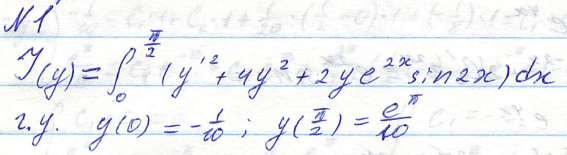 N1
J(y) = ∫₀^{π/2} (y'² + 4y² + 2ye^{2x} sin2x) dx
г.у. y(0) = -1/10 ; y(π/2) = e^π/10